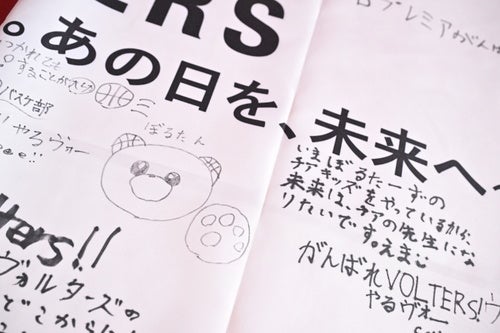 ERS
ロプレミアがんば
。あの日を、未来へ
つかれても
バスケ部
やるヴォー
ぼるたん
いまぼるたーずの
チアキッズをやっているから、
未来は、チアの先生にな
りたいです。えまこ
tters!!
がんばれVOLTERS!
やるヴォー
ヴォルターズの
どこから